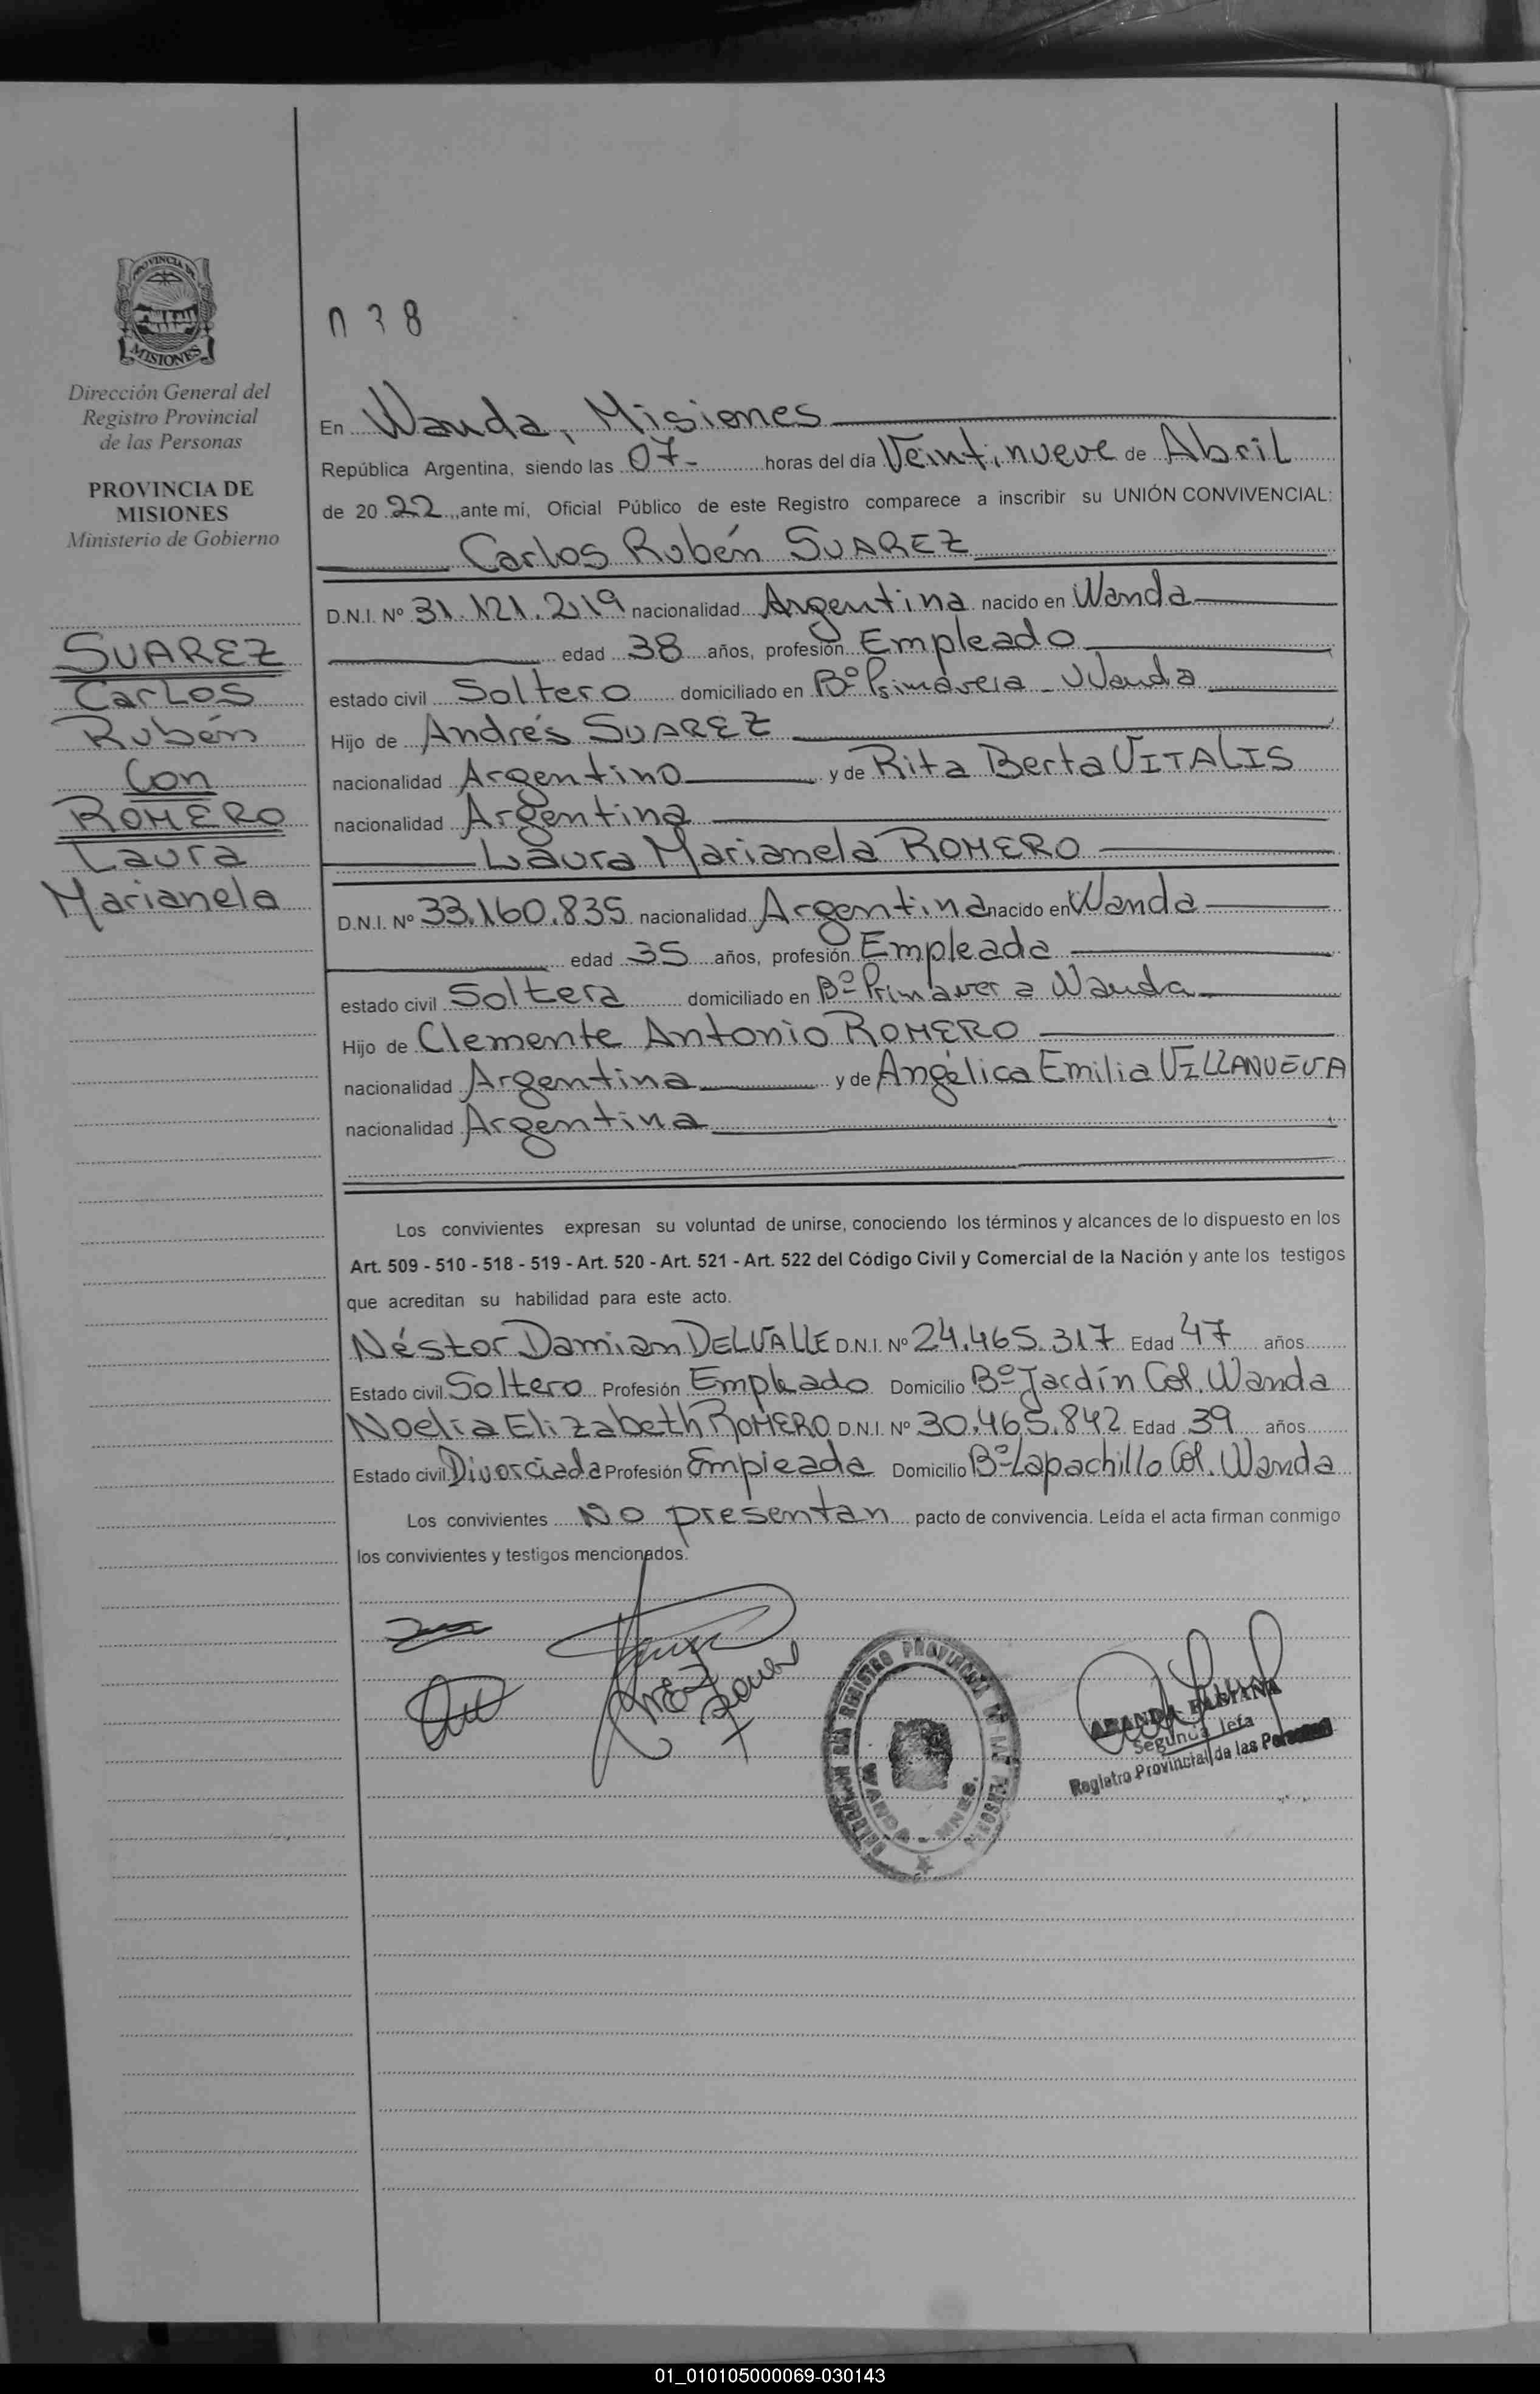 PROVINCIA DE
MISIONES
Dirección General del
Registro Provincial
de las Personas
PROVINCIA DE
MISIONES
Ministerio de Gobierno
SUAREZ
Carlos
Rubén
Con
ROMERO
Laura
Marianela
038
En Wanda, Misiones
República Argentina, siendo las 07- horas del día Veintinueve de Abril
de 2022, ante mi, Oficial Público de este Registro comparece a inscribir su UNIÓN CONVIVENCIAL:
Carlos Rubén SUAREZ
D.N.I. Nº 31.121.219 nacionalidad Argentina nacido en Wanda
edad 38 años, profesión Empleado
estado civil Soltero domiciliado en Bº Primavera - Wanda
Hijo de Andrés SUAREZ
nacionalidad Argentino y de Rita Berta VITALIS
nacionalidad Argentina
Laura Marianela ROMERO
D.N.I. Nº 33.160.835 nacionalidad Argentina nacido en Wanda
edad 35 años, profesión Empleada
estado civil Soltera domiciliado en Bº Primavera Wanda
Hijo de Clemente Antonio ROMERO
nacionalidad Argentina y de Angélica Emilia VILLANUEVA
nacionalidad Argentina
Los convivientes expresan su voluntad de unirse, conociendo los términos y alcances de lo dispuesto en los
Art. 509 - 510 - 518 - 519 - Art. 520 - Art. 521 - Art. 522 del Código Civil y Comercial de la Nación y ante los testigos
que acreditan su habilidad para este acto.
Néstor Damian DELVALLE D.N.I. Nº 24.465.317 Edad 47 años
Estado civil Soltero Profesión Empleado Domicilio Bº Jardín Col. Wanda
Noelia Elizabeth ROMERO D.N.I. Nº 30.465.842 Edad 39 años
Estado civil Divorciada Profesión Empleada Domicilio Bº Lapachillo Col. Wanda
Los convivientes No presentan pacto de convivencia. Leída el acta firman conmigo
los convivientes y testigos mencionados.
DELEGACION DEL REGISTRO PROVINCIAL DE LAS PERSONAS
WANDA - MNES.
ARANDA FABIANA
Segunda Jefa
Registro Provincial de las Personas
01_010105000069-030143